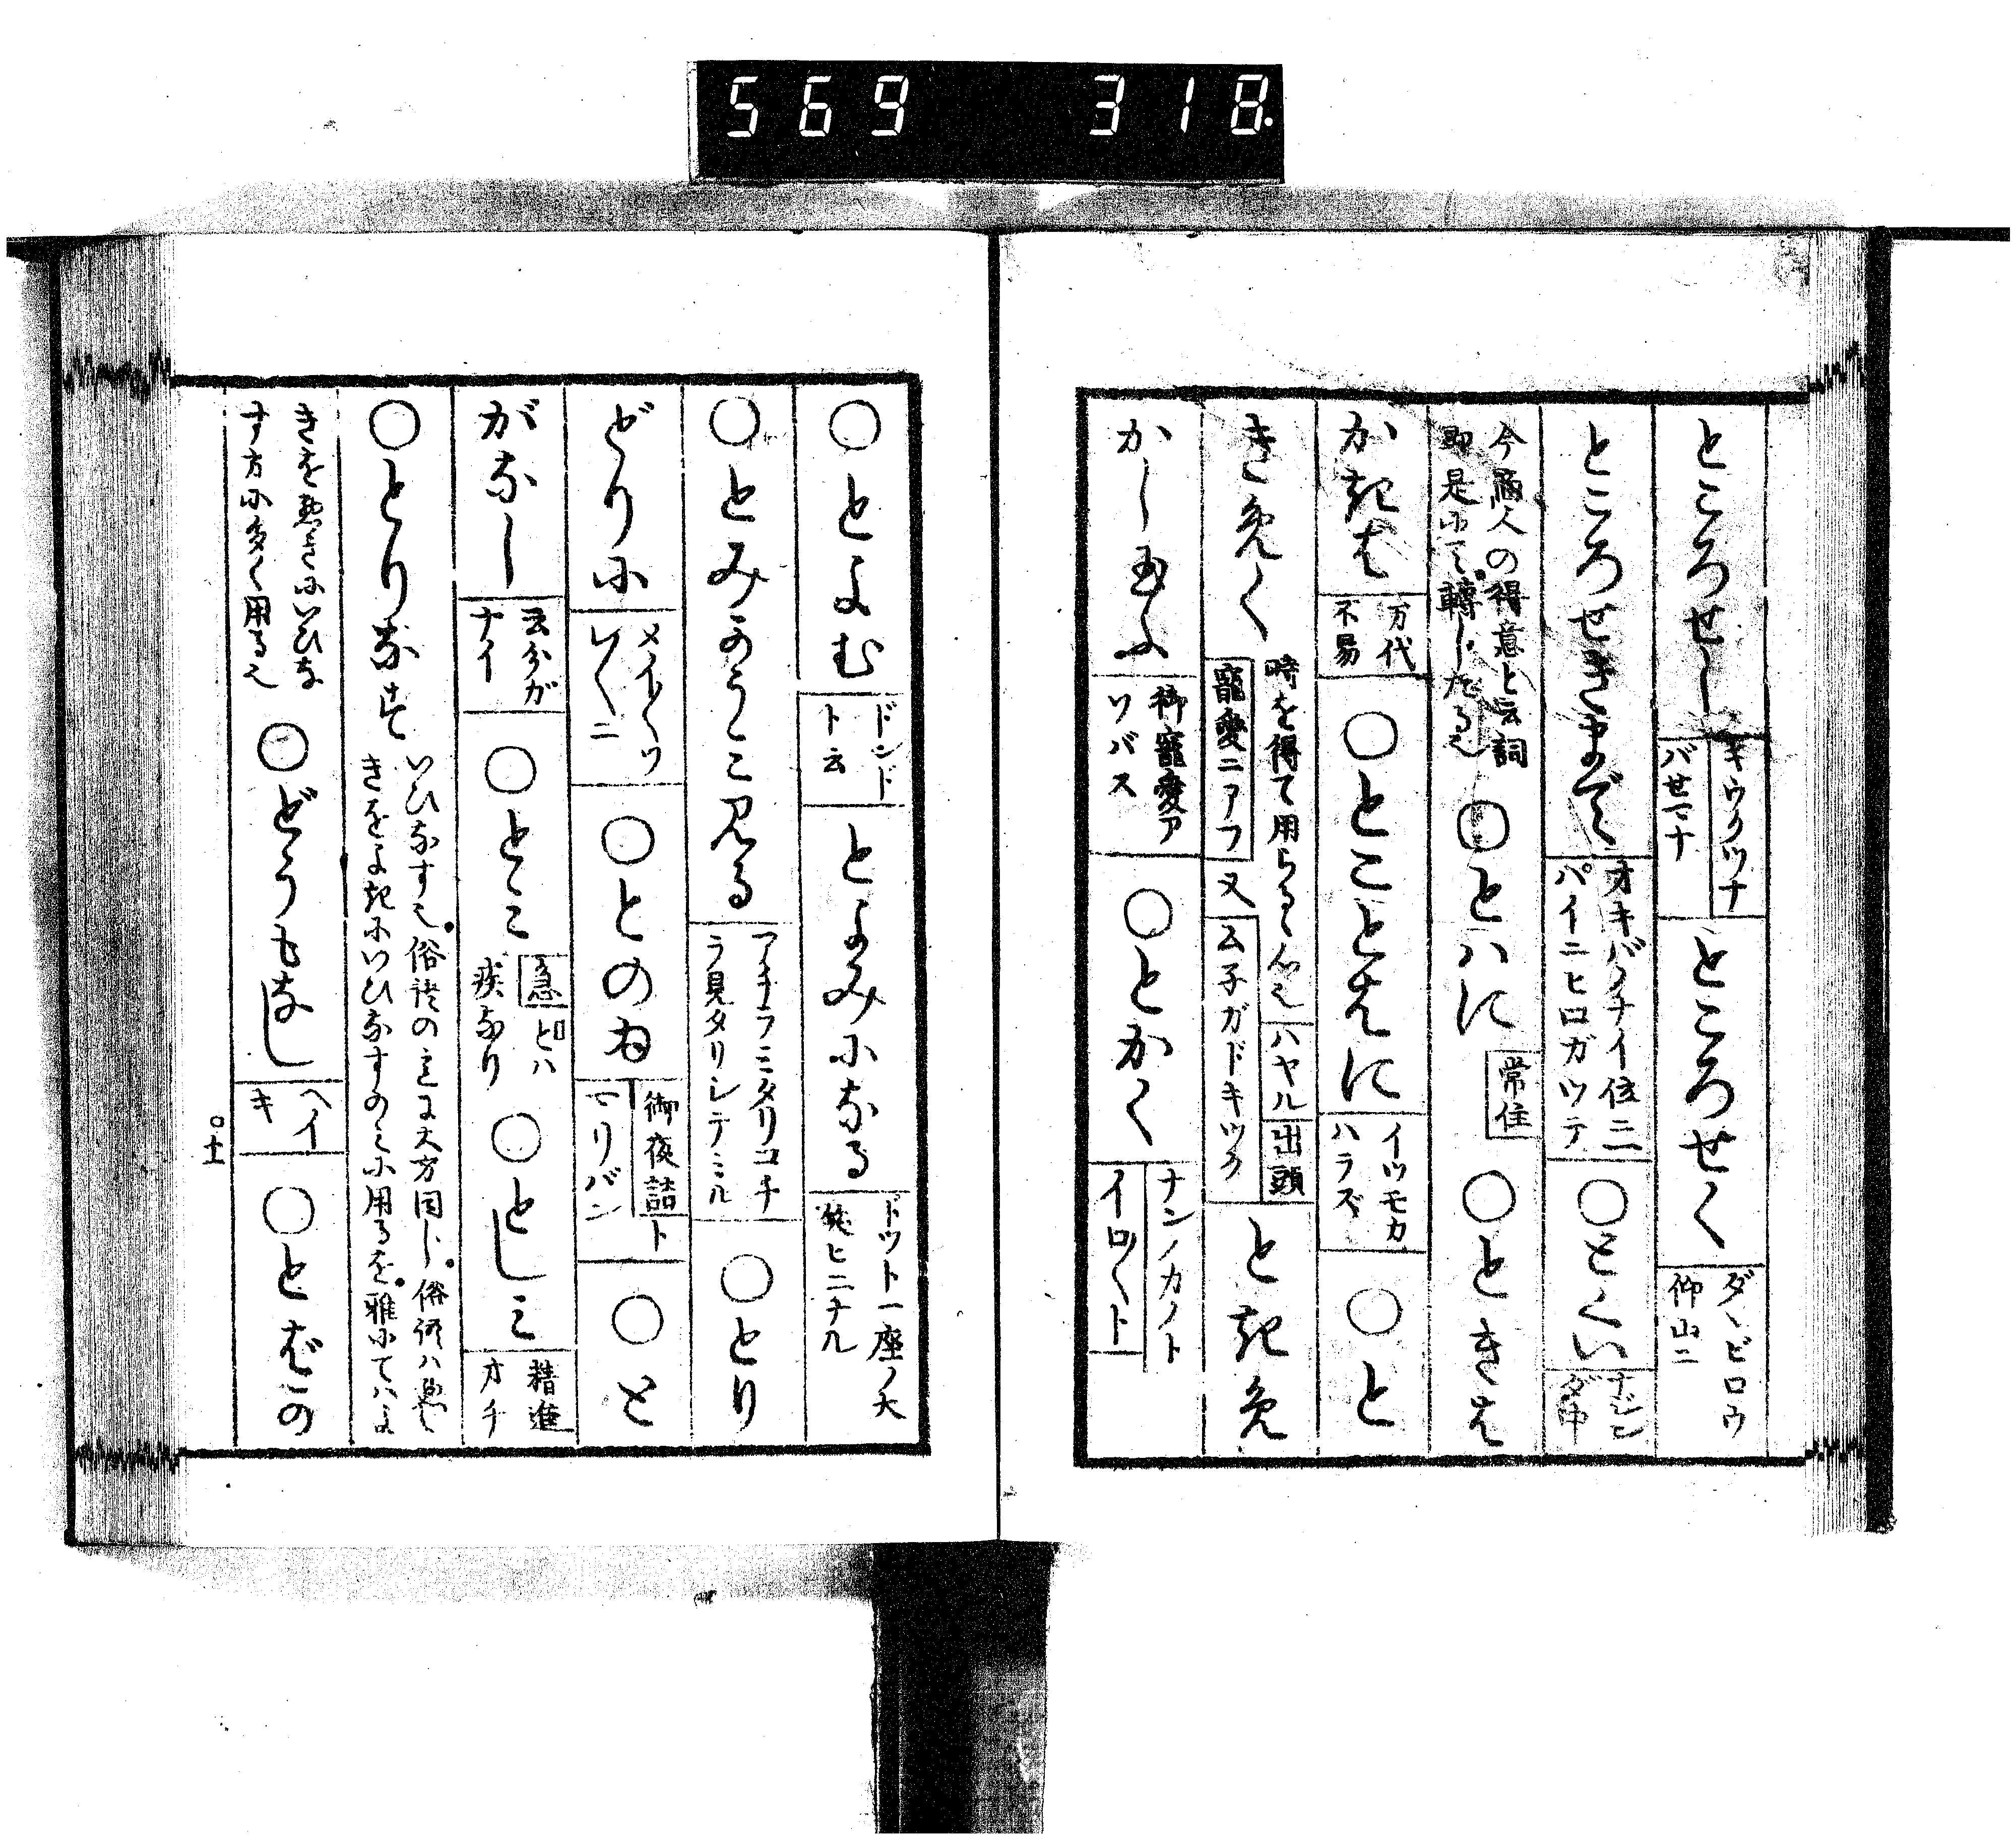 569 318
ところせし キウクツナ バせマナ ところせく ダヽビロウ 仰山ニ
ところせきまで オキバノナイ位ニ パイニヒロガツテ ○とくい ナジミ ダ中
今商人の得意と云詞 即是にて轉じたる也 ○とハに 常住 ○ときは
かきは 万代 不易 ○とことはに イツモカ ハラズ ○と
きめく 時を得て用らるゝ心也 ハヤル 出頭 寵愛ニアフ 又 云子ガドキツク ときめ
かし玉ふ 御寵愛ア ソバス ○とかく ナンノカノト イロ〳〵ト
○とよむ ドンド ト云 とよみになる ドツト一座ノ大 咲ヒニナル
○とみかうこ見る アチラミタリコチ ラ見タリシテミル ○とり
どりに メイ〳〵ソ レ〳〵ニ ○とのゐ 御夜詰 ト マリバン ○と
がなし 云分ガ ナイ ○とみ 急 とハ 疾なり ○としみ 精進 オチ
○とりなす いひなす也。俗語の意と大方同じ。俗語ハ悪し きをよきにいひなすのミに用るを。雅にてハよ
きを悪きにいひな す方に多く用る也 ○どうもなし ヘイ キ ○とばかの
○十一